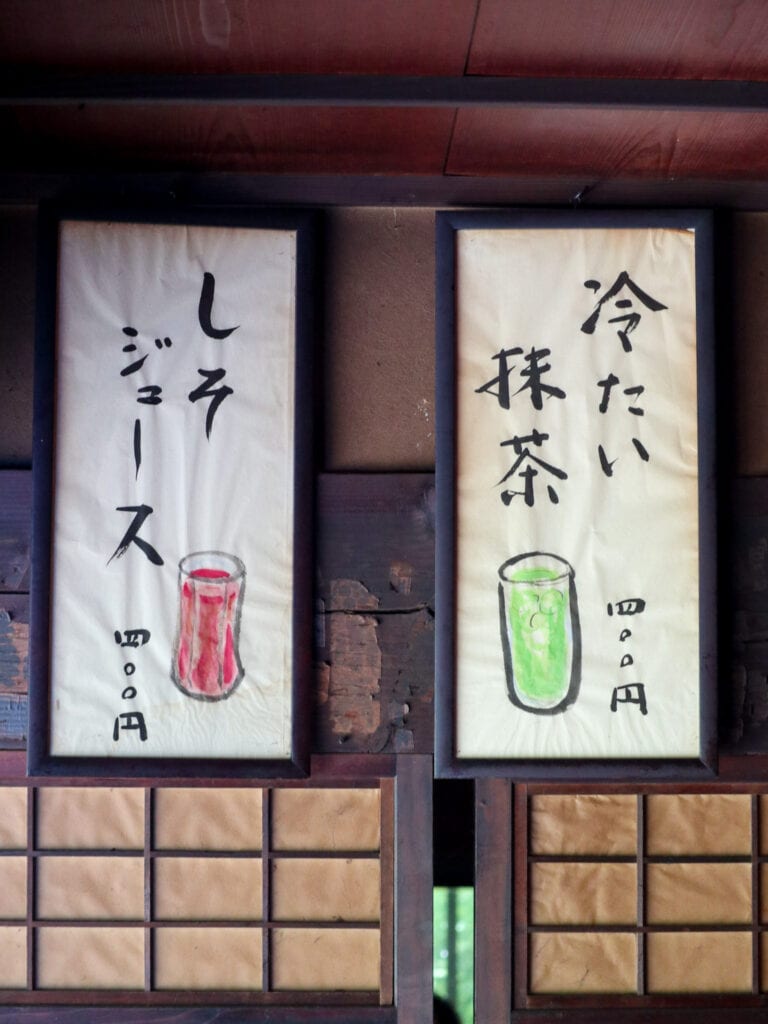 冷たい
抹茶
四〇〇円
しそ
ジュース
四〇〇円